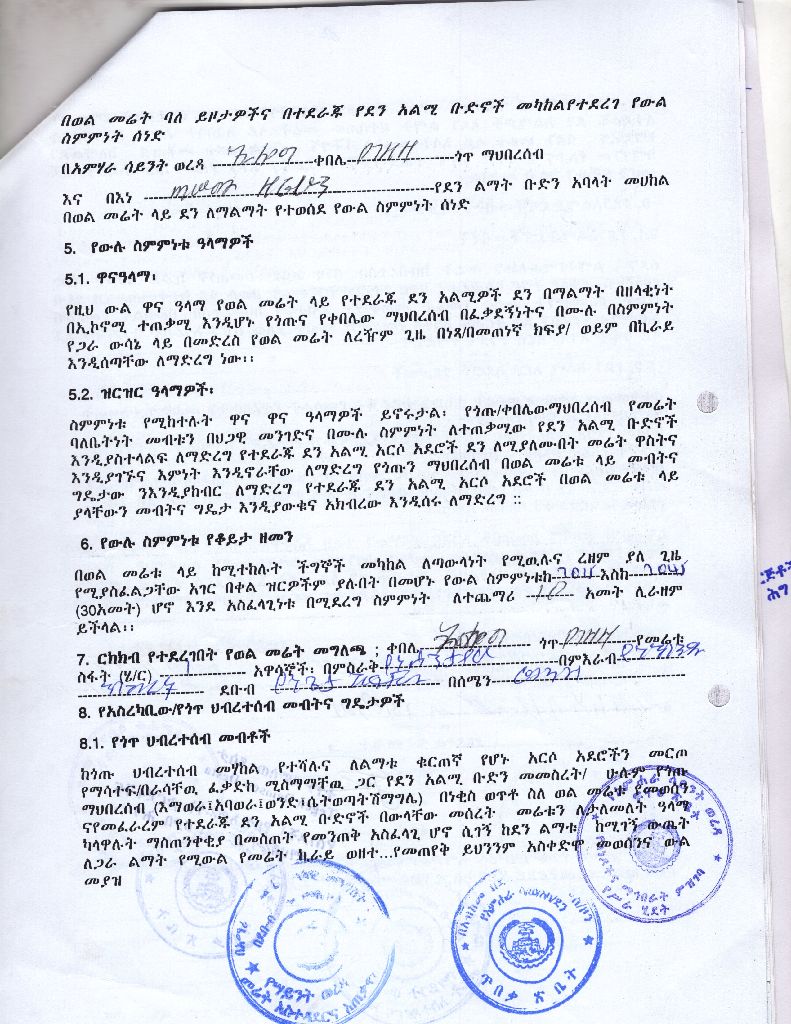 በወል መሬት ባለ ይዞታዎችና በተደራጁ የደን አልሚ ቡድኖች መካከልየተደረገ የውል
ስምምነት ሰነድ
በአምሃራ ሳይንት ወረዳ ቀበሌ ጎጥ ማህበረሰብ
እና በእነ የደን ልማት ቡድን አባላት መሀከል
በወል መሬት ላይ ደን ለማልማት የተወሰደ የውል ስምምነት ሰነድ
5. የውሉ ስምምነቱ ዓላማዎች
5.1. ዋናዓላማ፡
የዚህ ውል ዋና ዓላማ የወል መሬት ላይ የተደራጁ ደን አልሚዎች ደን በማልማት በዘላቂነት
በኢኮኖሚ ተጠቃሚ እንዲሆኑ የጎጡና የቀበሌው ማህበረሰብ በፈቃደኝነትና በሙሉ በስምምነት
የጋራ ውሳኔ ላይ በመድረስ የወል መሬት ለረዥም ጊዜ በነጻ/በመጠነኛ ክፍያ/ ወይም በኪራይ
እንዲሰጣቸው ለማድረግ ነው፡፡
5.2. ዝርዝር ዓላማዎች፡
ስምምነቱ የሚከተሉት ዋና ዋና ዓላማዎች ይኖሩታል፡ የጎጡ/ቀበሌውማህበረሰብ የመሬት
ባለቤትነት መብቱን በህጋዊ መንገድና በሙሉ ስምምነት ለተጠቃሚው የደን አልሚ ቡድኖች
እንዲያስተላልፍ ለማድረግ የተደራጁ ደን አልሚ አርሶ አደሮች ደን ለሚያለሙበት መሬት ዋስትና
እንዲያገኙና እምነት እንዲኖራቸው ለማድረግ የጎጡን ማህበረሰብ በወል መሬቱ ላይ መብትና
ግዴታው ንእንዲያከብር ለማድረግ የተደራጁ ደን አልሚ አርሶ አደሮች በወል መሬቱ ላይ
ያላቸውን መብትና ግዴታ እንዲያውቁና አክብረው እንዲሰሩ ለማድረግ ::
6. የውሉ ስምምነቱ የቆይታ ዘመን
በወል መሬቱ ላይ ከሚተከሉት ችግኞች መካከል ለጣውላነት የሚዉሉና ረዘም ያለ ጊዜ
የሚያስፈልጋቸው አገር በቀል ዝርዎችም ያሉበት በመሆኑ የውል ስምምነቱከ እስከ
(30አመት) ሆኖ እንደ አስፈላጊነቱ በሚደረግ ስምምነት ለተጨማሪ 10 አመት ሊራዘም
ይችላል፡፡
7. ርክክብ የተደረገበት የወል መሬት መግለጫ ; ቀበሌ ጎጥ የመሬቱ
ስፋት (ሄ/ር) 1 አዋሳኞች፡ በምስራቅ በምእራብ
ደቡብ በሰሜን
8. የአስረካቢው/የጎጥ ህብረተሰብ መብትና ግዴታዎች
8.1. የጎጥ ህብረተሰብ መብቶች
ከጎጡ ህብረተሰብ መሃከል የተሻሉና ለልማቱ ቁርጠኛ የሆኑ አርሶ አደሮችን መርጦ
የማሳተፍ/በራሳቸዉ ፈቃድከ ሚስማማቸዉ ጋር የደን አልሚ ቡድን መመስረት/ ሁሉም የጎጡ
ማህበረሰብ (እማወራ፤አባወራ፤ወንድ፤ሴትወጣትሽማግሌ) በነቂስ ወጥቶ ስለ ወል መሬቱ የመወሰን
ናየመፈራረም የተደራጁ ደን አልሚ ቡድኖች በውላቸው መሰረት መሬቱን ለታለመለት ዓላማ
ካላዋሉት ማስጠንቀቂያ በመስጠት የመንጠቅ አስፈላጊ ሆኖ ሲገኝ ከደን ልማቱ ከሚገኝ ውጤት
ለጋራ ልማት የሚውል የመሬት ኪራይ ወዘተ...የመጠየቅ ይህንንም አስቀድሞ መወሰንና ውል
መያዝ
መሬት አስተዳደርና አጠቃ
ጥበቃ ጽ ቤት